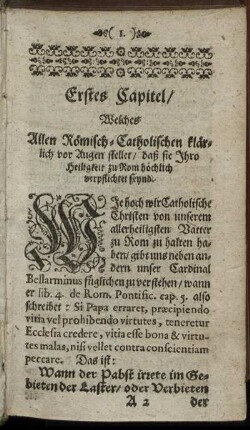 ( 1. )
Erstes Capitel/
Welches
Allen Römisch-Catholischen klär-
lich vor Augen stellet/ daß sie Ihro
Heiligkeit zu Rom höchlich
verpflichtet seynd.
WIe hoch wir Catholische
Christen von unserem
allerheiligsten Vatter
zu Rom zu halten ha-
ben/ gibt uns neben an-
dern unser Cardinal
Bellarminus füglichen zu verstehen/ wann
er lib. 4. de Rom. Pontific. cap. 5. also
schreibet: Si Papa erraret, præcipiendo
vitia vel prohibendo virtutes, teneretur
Ecclesia credere, vitia esse bona & virtu-
tes malas, nisi vellet contra conscientiam
peccare. Das ist:
Wann der Pabst irrete im Ge-
bieten der Laster/ oder Verbieten
A 2 der